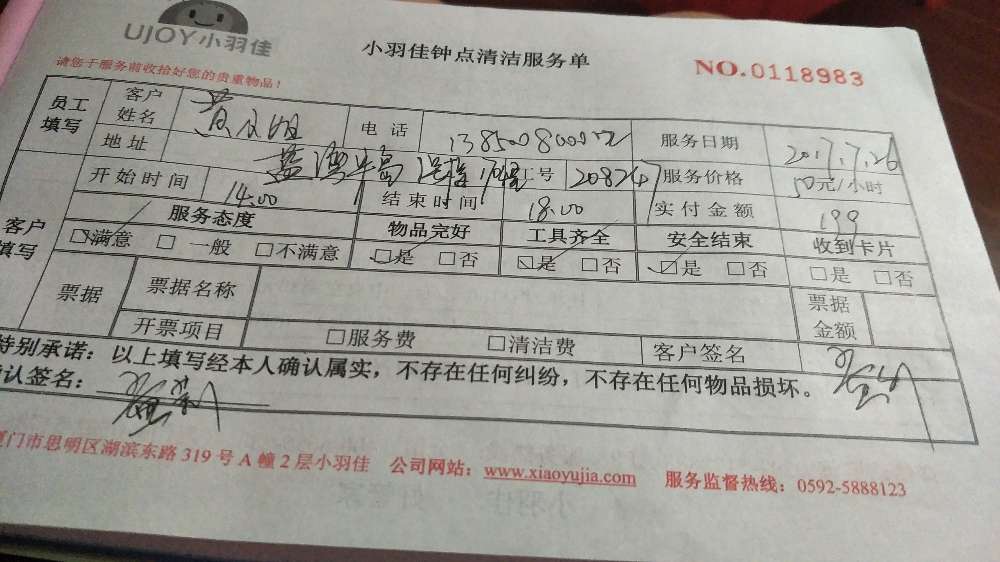 UJOY小羽佳
小羽佳钟点清洁服务单
NO.0118983
请您于服务前收拾好您的贵重物品！
员工填写 客户姓名 黄 电话 服务日期 2017.7.26
地址 蓝湾半岛 工号 208247 服务价格 50元/小时
客户填写 开始时间 14.00 结束时间 18.00 实付金额 199
服务态度 物品完好 工具齐全 安全结束 收到卡片
☑满意 □一般 □不满意 ☑是 □否 ☑是 □否 ☑是 □否 □是 □否
票据 票据名称 票据金额
开票项目 □服务费 □清洁费 客户签名
特别承诺：以上填写经本人确认属实，不存在任何纠纷，不存在任何物品损坏。
认签名：
厦门市思明区湖滨东路319号A幢2层小羽佳 公司网站：www.xiaoyujia.com 服务监督热线：0592-5888123